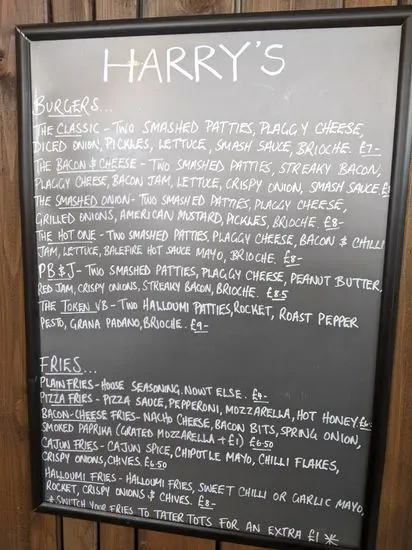 HARRY'S
BURGERS...
THE CLASSIC - TWO SMASHED PATTIES, PLAGGY CHEESE,
DICED ONION, PICKLES, LETTUCE, SMASH SAUCE, BRIOCHE. £7-
THE BACON & CHEESE - TWO SMASHED PATTIES, STREAKY BACON,
PLAGGY CHEESE, BACON JAM, LETTUCE, CRISPY ONION, SMASH SAUCE
THE SMASHED ONION - TWO SMASHED PATTIES, PLAGGY CHEESE,
GRILLED ONIONS, AMERICAN MUSTARD, PICKLES, BRIOCHE. £8-
THE HOT ONE - TWO SMASHED PATTIES, PLAGGY CHEESE, BACON & CHILLI
JAM, LETTUCE, BALEFIRE HOT SAUCE MAYO, BRIOCHE. £8-
PB&J - TWO SMASHED PATTIES, PLAGGY CHEESE, PEANUT BUTTER,
RED JAM, CRISPY ONIONS, STREAKY BACON, BRIOCHE. £8.5
THE TOKEN VB - TWO HALLOUMI PATTIES, ROCKET, ROAST PEPPER
PESTO, GRANA PADANO, BRIOCHE. £9-
FRIES...
PLAIN FRIES - HOUSE SEASONING. NOWT ELSE. £4-
PIZZA FRIES - PIZZA SAUCE, PEPPERONI, MOZZARELLA, HOT HONEY. £6-
BACON-CHEESE FRIES - NACHO CHEESE, BACON BITS, SPRING ONION,
SMOKED PAPRIKA (GRATED MOZZARELLA + £1) £6.50
CAJUN FRIES - CAJUN SPICE, CHIPOTLE MAYO, CHILLI FLAKES,
CRISPY ONIONS, CHIVES. £6.50
HALLOUMI FRIES - HALLOUMI FRIES, SWEET CHILLI OR GARLIC MAYO,
ROCKET, CRISPY ONIONS & CHIVES. £8-
* SWITCH YOUR FRIES TO TATER TOTS FOR AN EXTRA £1 *